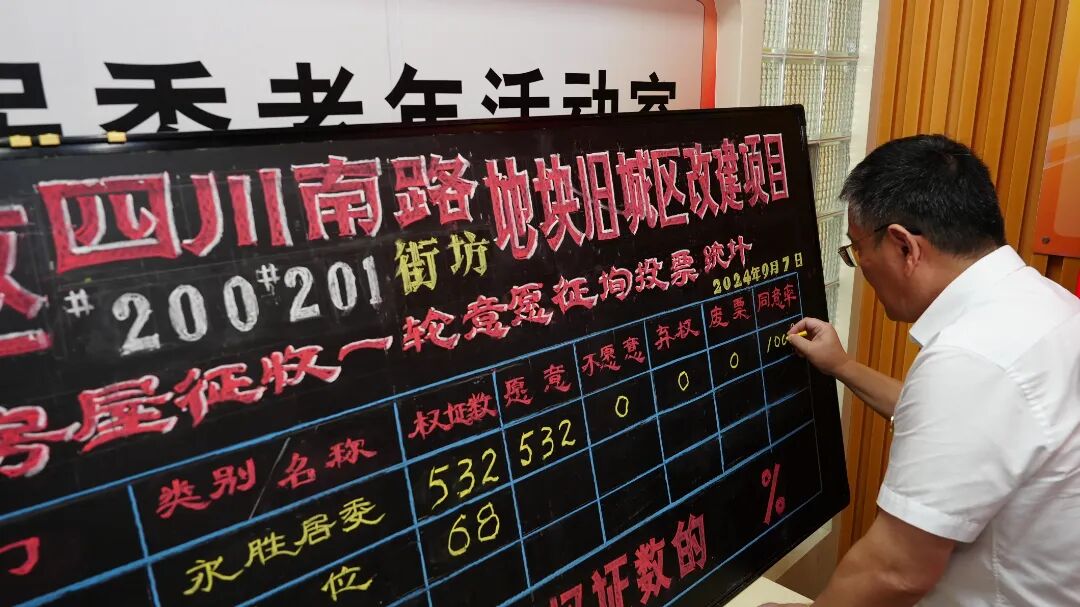 居委老年活动室
四川南路地块旧城区改建项目
#200#201街坊
房屋征收一轮意愿征询投票统计
2024年9月7日
类别 名称 权证数 愿意 不愿意 弃权 废票 同意率
永胜居委 532 532 0 0 0 100
位 68
权证数的 %